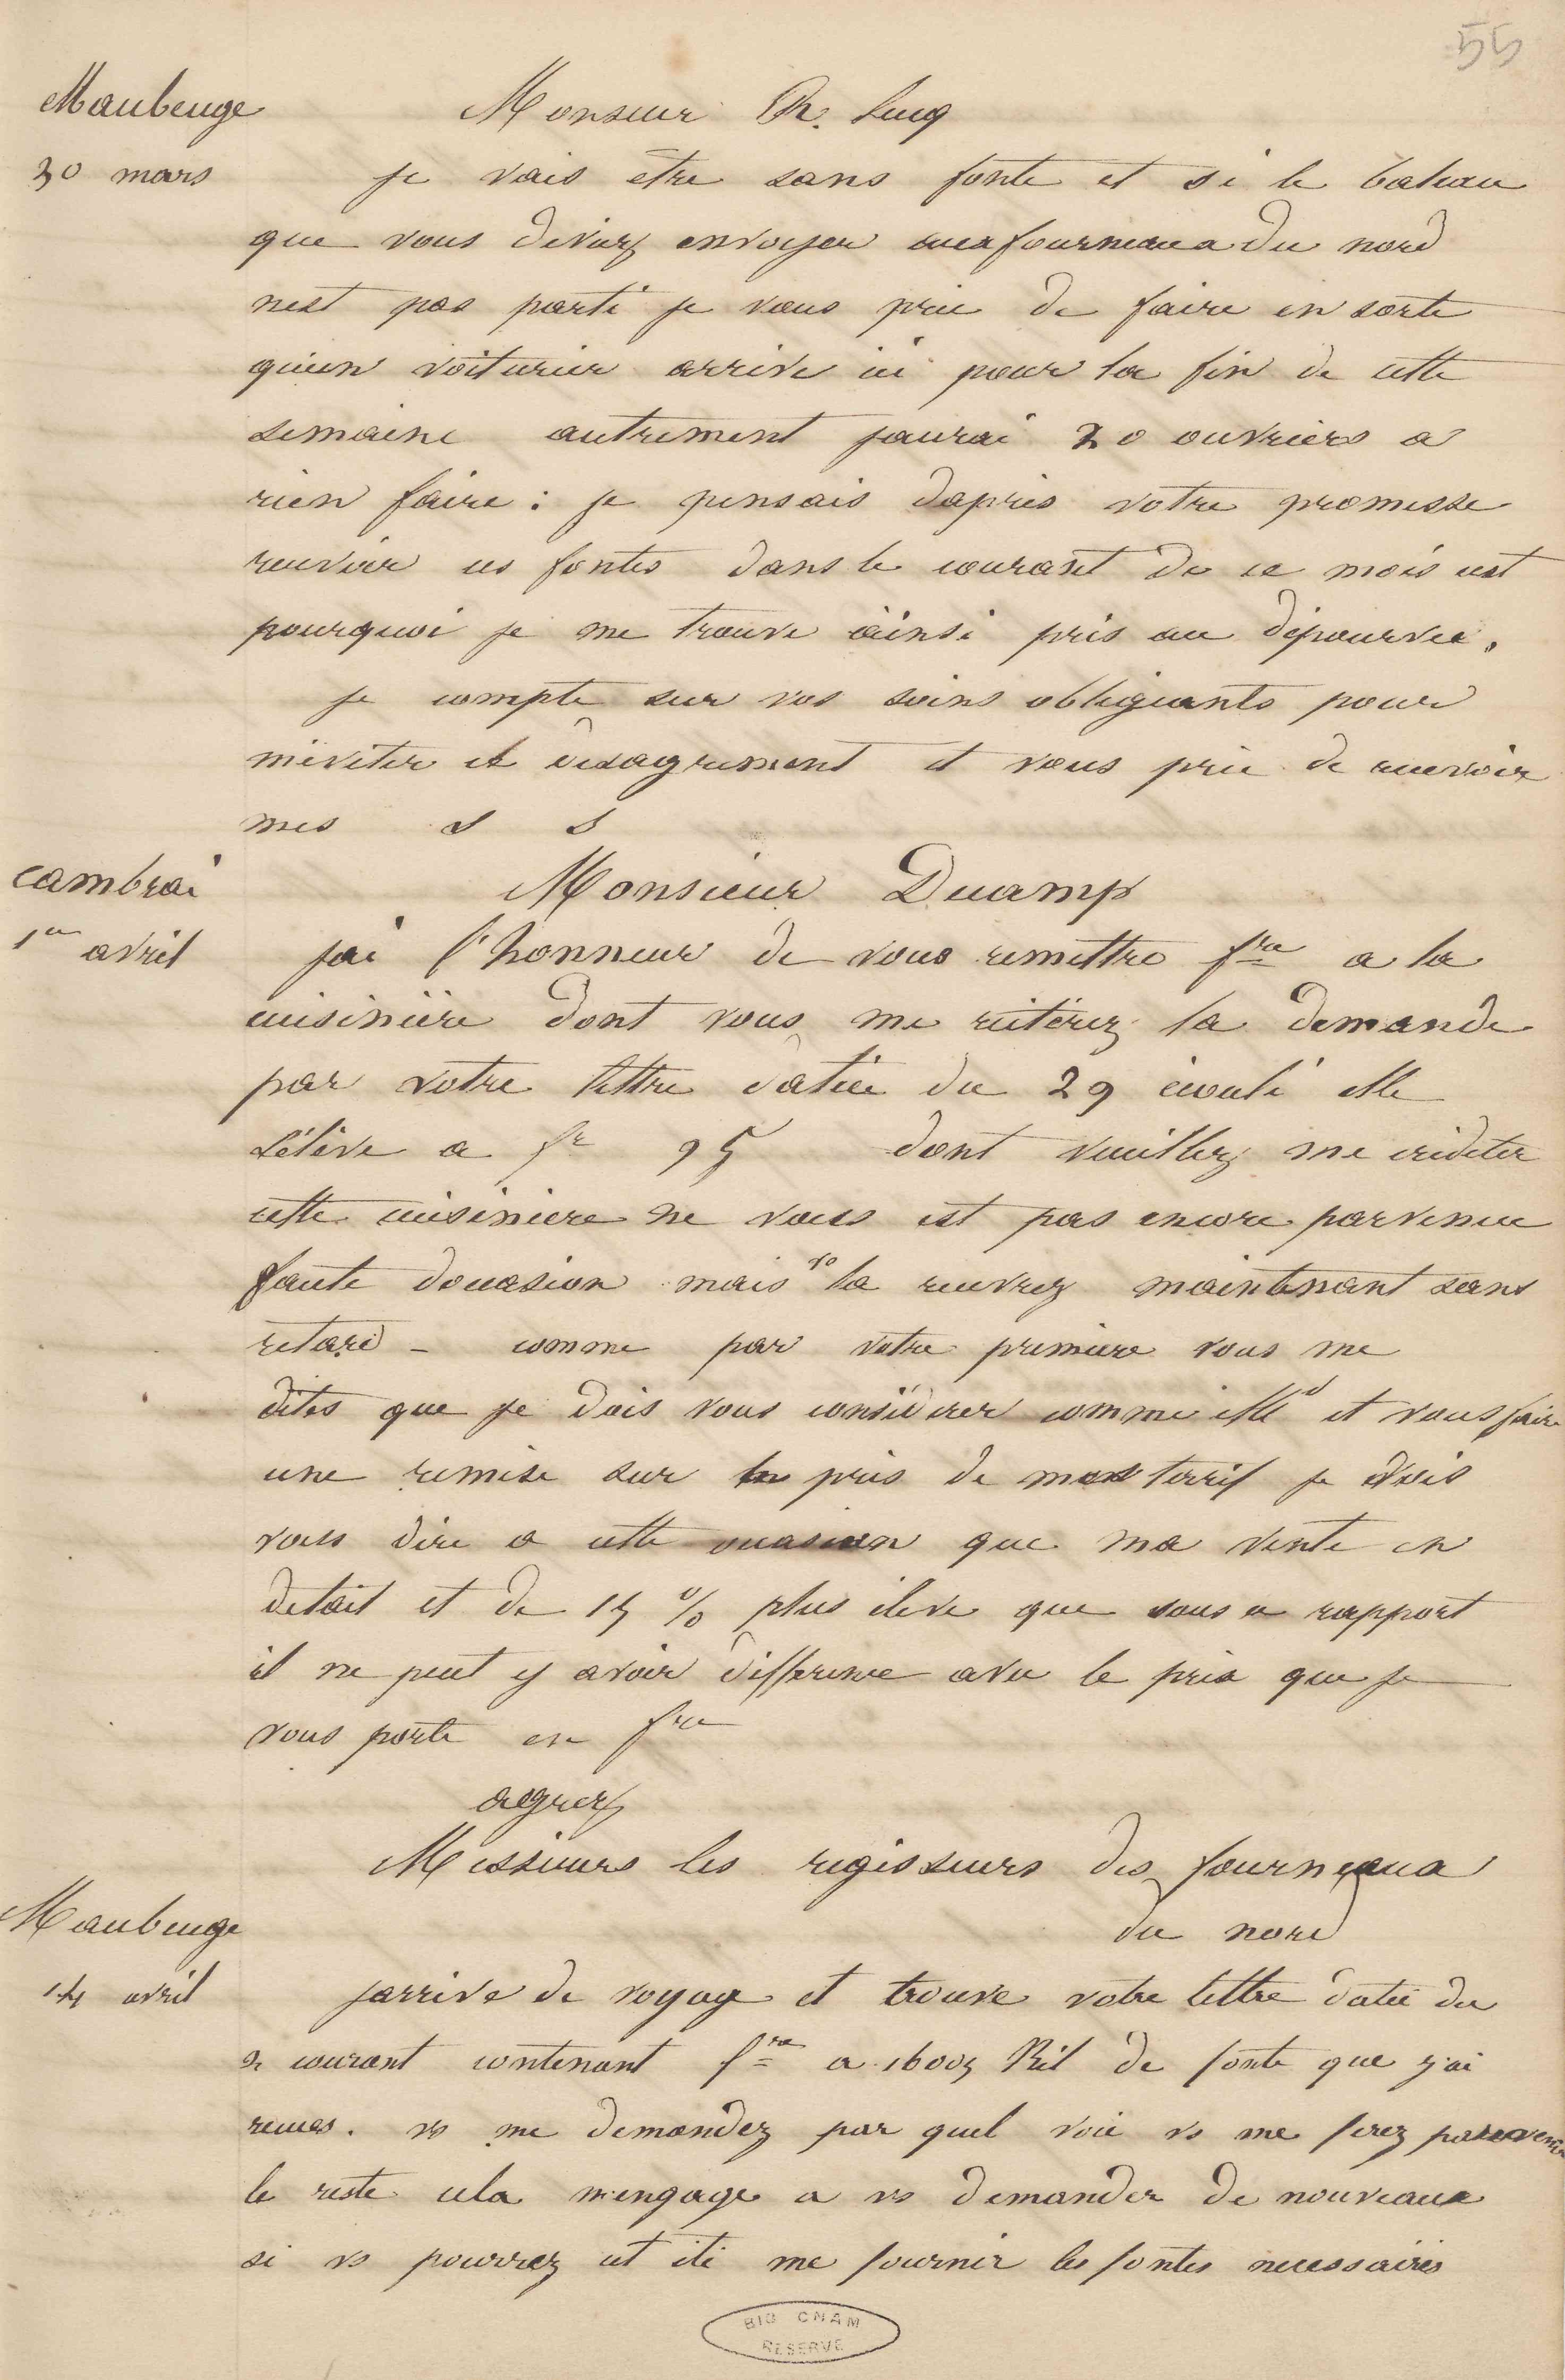 55
Maubeuge
Monsieur Ch. Lucq
30 mars
je vais être sans fonte et si le bateau
que vous deviez envoyer aux fourneaux du nord
nest pas parti je vous prie de faire en sorte
qu'un voiturier arrive ici pour la fin de cette
semaine autrement jaurai 20 ouvriers a
rien faire : je pensais dapres votre promesse
recevoir ces fontes dans le courant de ce mois cest
pourquoi je me trouve ainsi pris au dépourvu.
je compte sur vos soins obligeants pour
meviter ce desagrement et vous prie de recevoir
mes s s
Cambrai
Monsieur Ducamp
1er avril
jai l'honneur de vous remettre fre a la
cuisinière dont vous me réiterez la demande
par votre lettre datée du 29 écoulé elle
s'élève a fr 95 dont veuillez me créditer
cette cuisiniere ne vous est pas encore parvenue
faute doccasion mais vo la recevrez maintenant sans
retard - comme par votre premiere vous me
dites que je dois vous considerer comme Md et vous faire
une remise sur les prix de mon tarrif je dois
vous dire a cette occasion que ma vente en
detail et de 15 % plus eleve que sous ce rapport
il ne peut y avoir difference avec le prix que je
vous porte en fre
agreez
Messieurs les regisseurs des fourneaux
du nord
Maubeuge
14 avril
jarrive de voyage et trouve votre lettre datée du
2 courant contenant fre a 16005 Kil de fonte que j'ai
recues. vs me demandez par quel voie vs me ferez parvenir
le reste cela m'engage a vs demander de nouveaux
si vs pourrez cet été me fournir les fontes necessaires
BIB CNAM
RESERVE